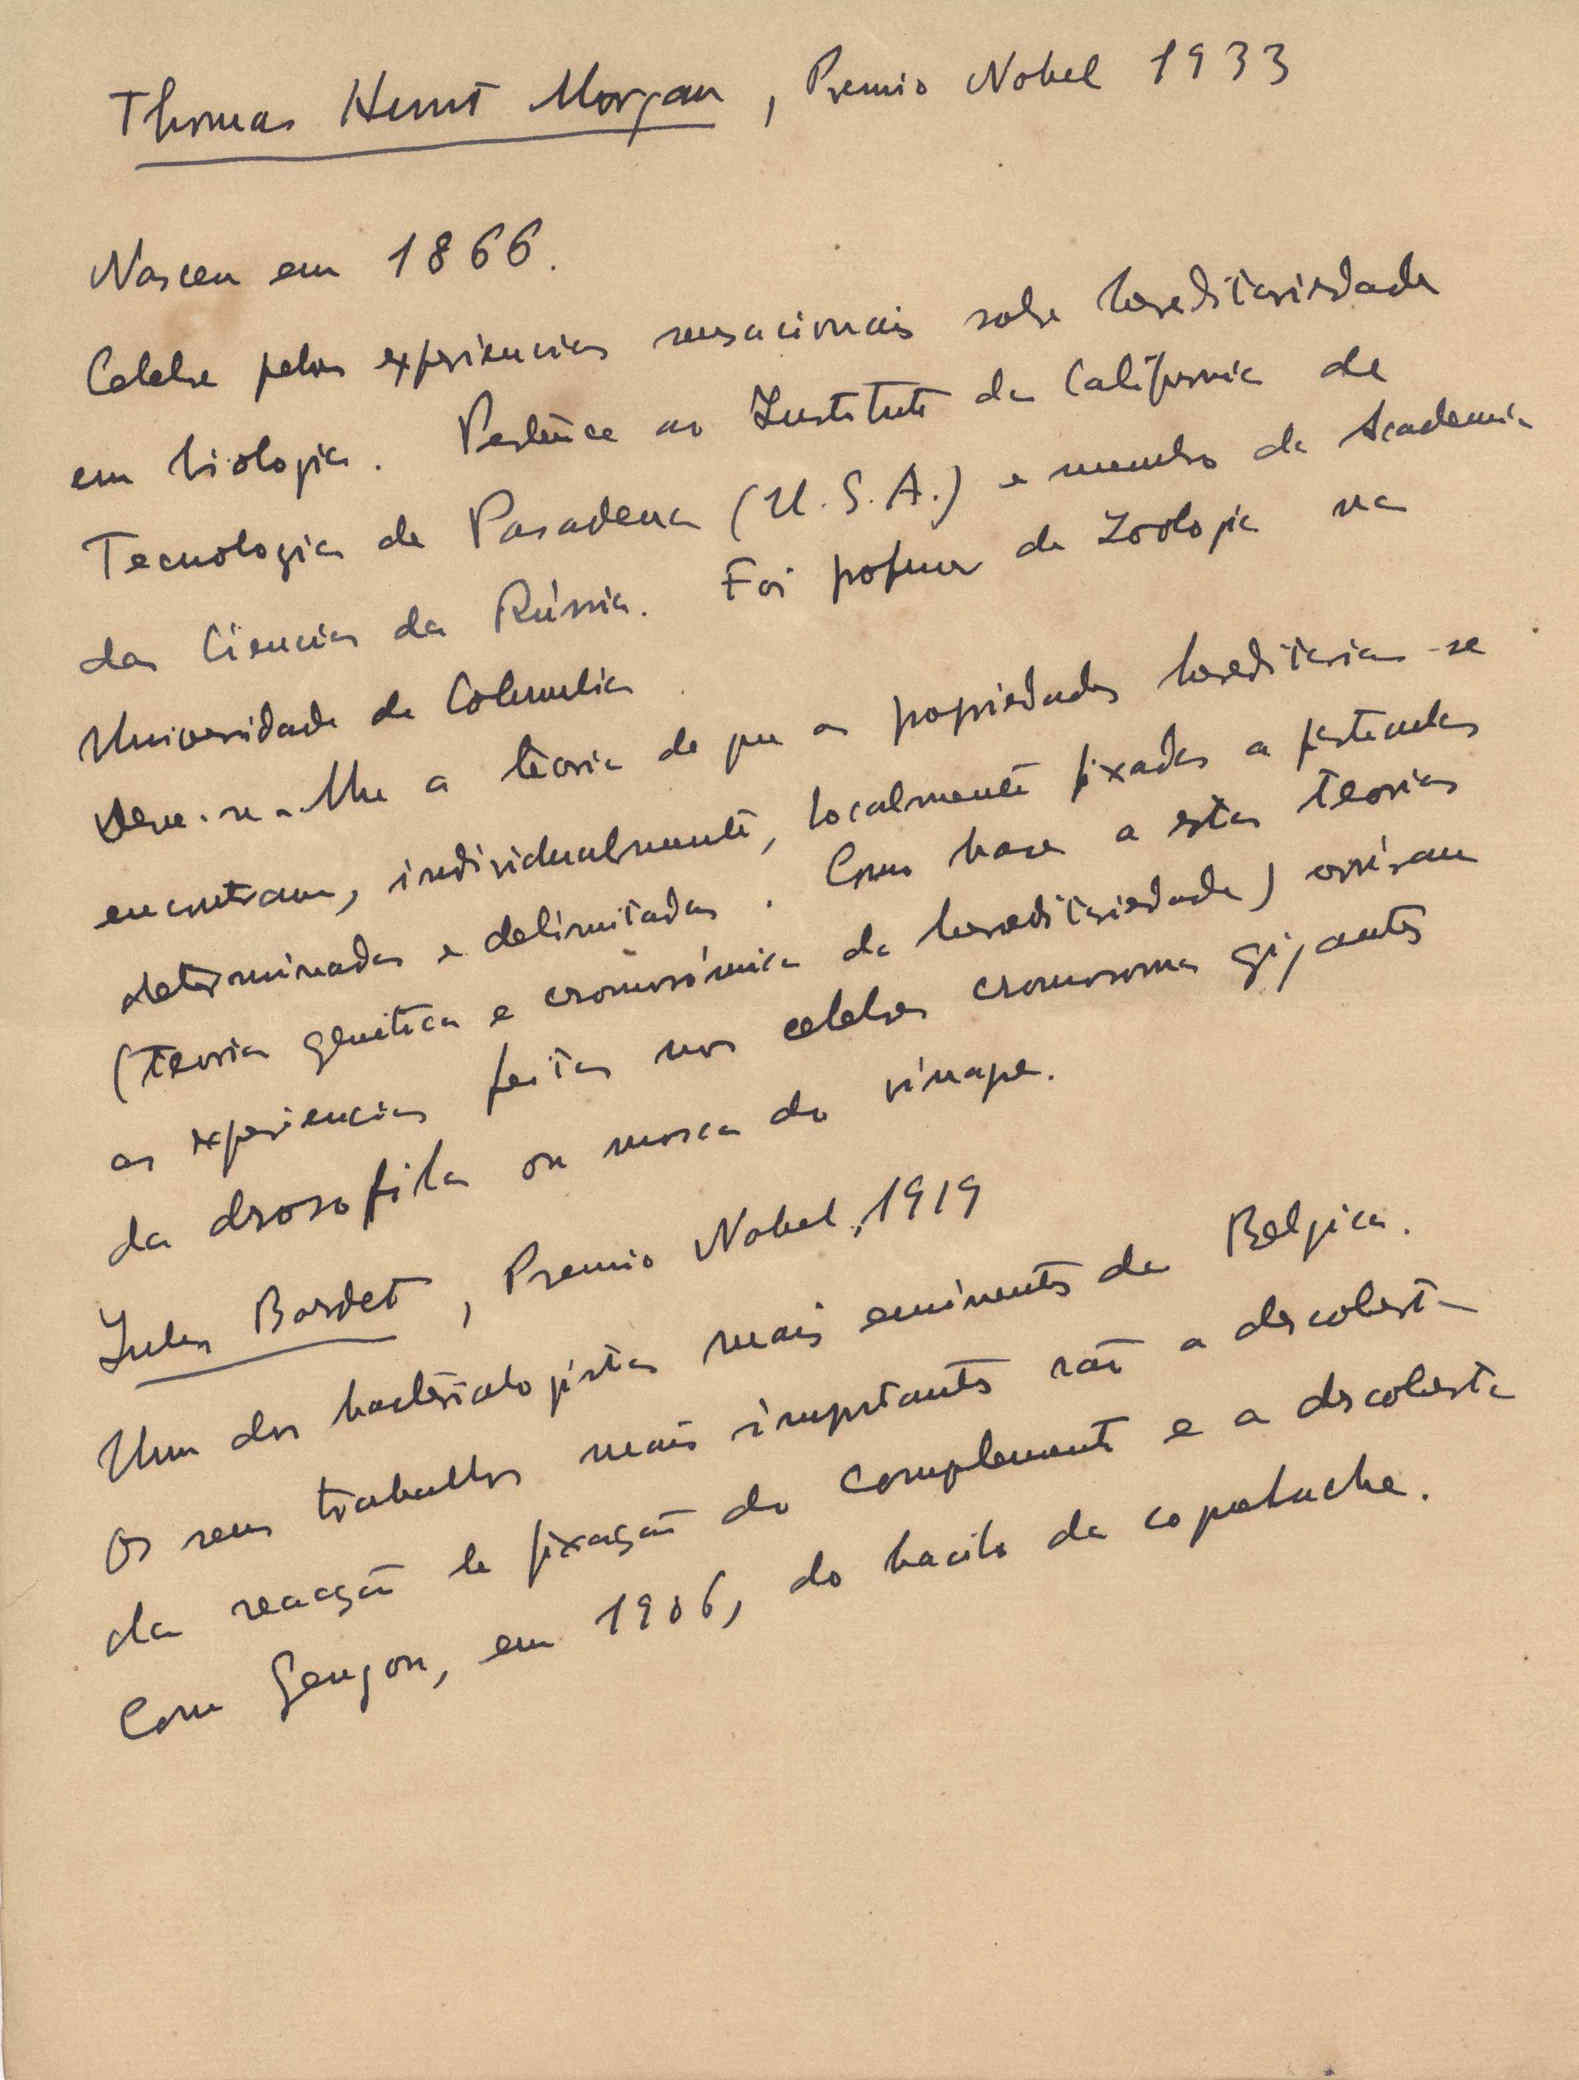 Thomas Hunt Morgan, Premio Nobel 1933
Nasceu em 1866.
Celebre pelas experiencias sensacionais sobre hereditariedade
em biologia. Pertence ao Instituto da California de
Tecnologia de Pasadena (U.S.A.) e membro da Academia
das Ciencias da Rússia. Foi professor de Zoologia na
Universidade de Columbia.
Deve-se-lhe a teoria de que as propriedades hereditarias se
encontram, individualmente, localmente fixadas a particulas
determinadas e delimitadas. Como base a estas teorias
(teoria genetica e cromosómica da hereditariedade)
as experiencias feitas nos celebres cromosomas gigantes
da drosofila ou mosca do vinagre.
Jules Bordet, Premio Nobel, 1919
Um dos bacteriologistas mais eminentes da Belgica.
Os seus trabalhos mais importantes são a descoberta
da reacção de fixação do complemento e a descoberta
com Gengou, em 1906, do bacilo da coqueluche.